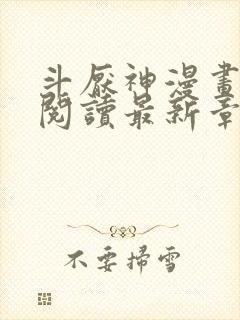 斗厭神漫畫
閱讀最新章
不要掃雪